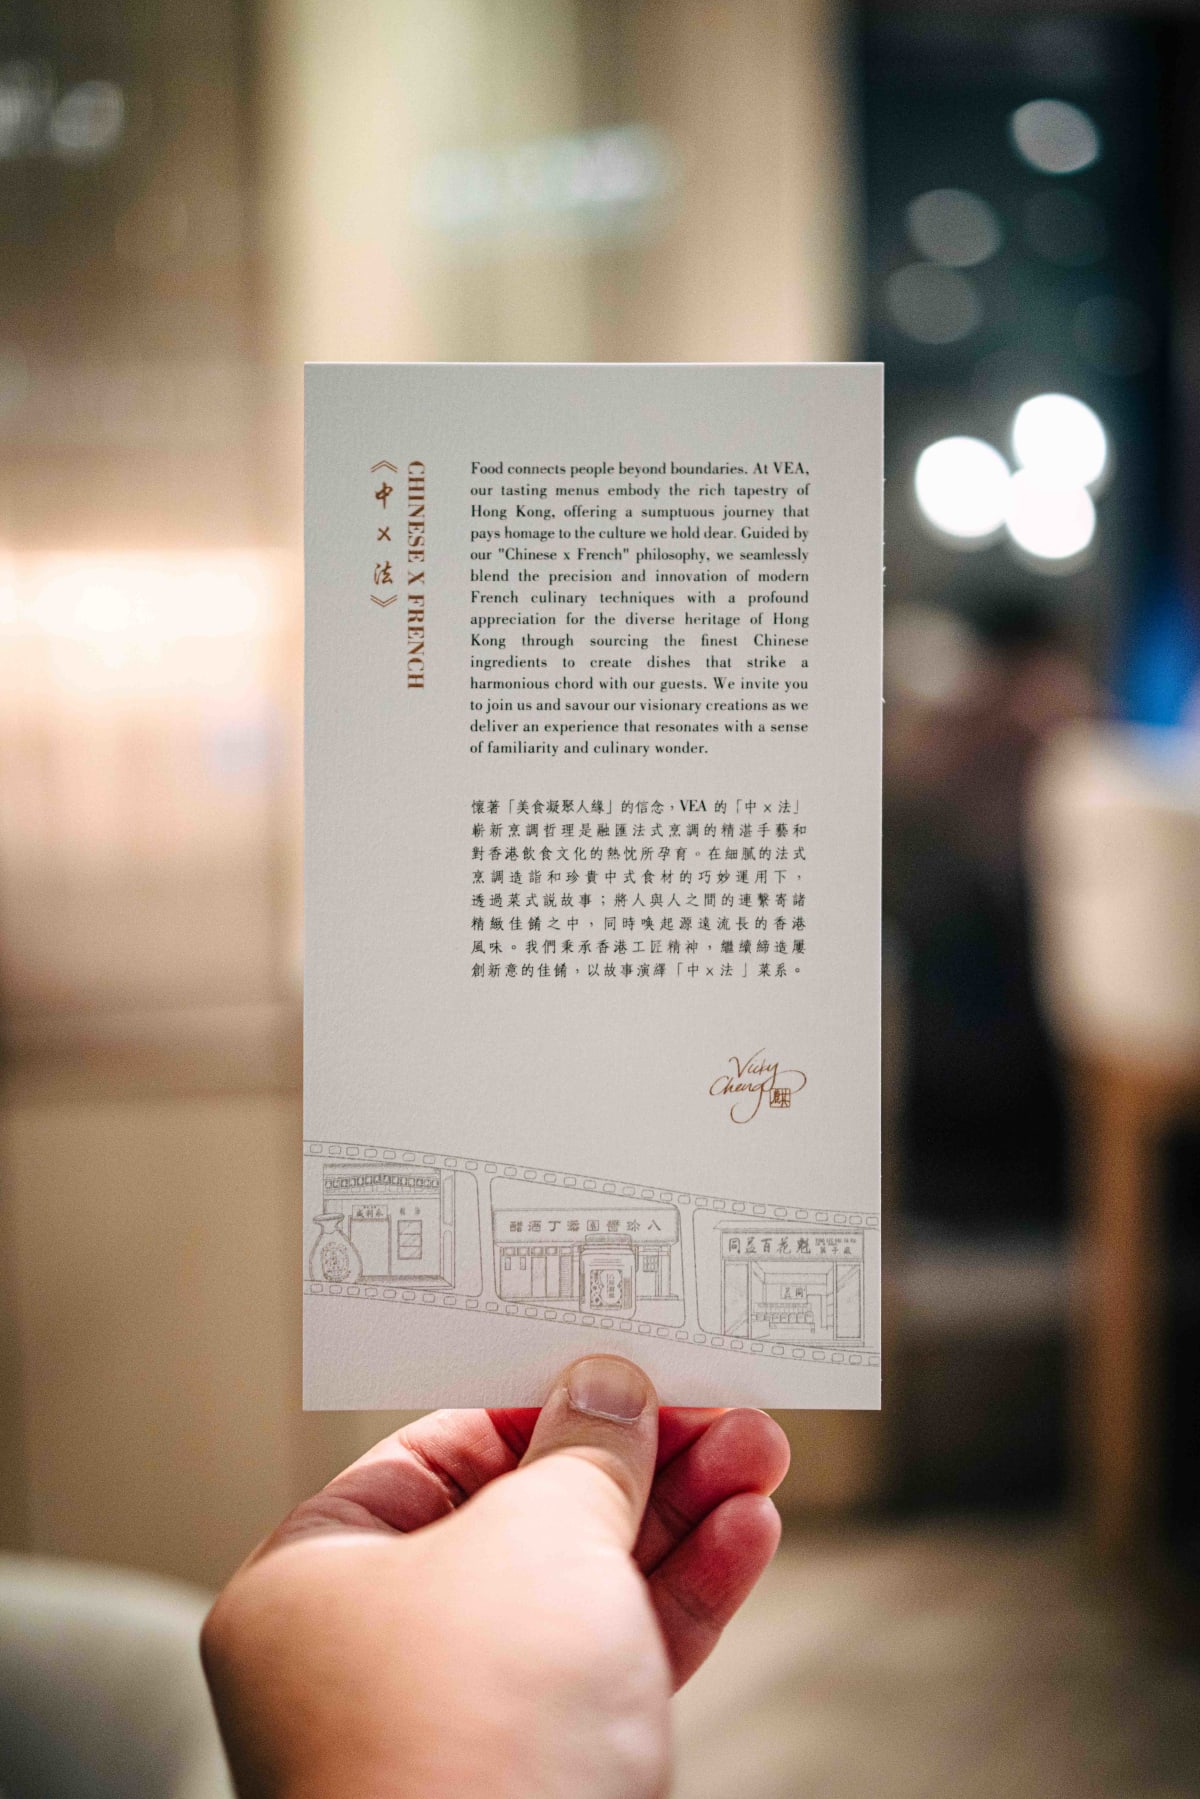 《中×法》
CHINESE X FRENCH
Food connects people beyond boundaries. At VEA,
our tasting menus embody the rich tapestry of
Hong Kong, offering a sumptuous journey that
pays homage to the culture we hold dear. Guided by
our "Chinese x French" philosophy, we seamlessly
blend the precision and innovation of modern
French culinary techniques with a profound
appreciation for the diverse heritage of Hong
Kong through sourcing the finest Chinese
ingredients to create dishes that strike a
harmonious chord with our guests. We invite you
to join us and savour our visionary creations as we
deliver an experience that resonates with a sense
of familiarity and culinary wonder.
懷著「美食凝聚人緣」的信念，VEA 的「中 x 法」
嶄新烹調哲理是融匯法式烹調的精湛手藝和
對香港飲食文化的熱忱所孕育。在細膩的法式
烹調造詣和珍貴中式食材的巧妙運用下，
透過菜式說故事；將人與人之間的連繫寄諸
精緻佳餚之中，同時喚起源遠流長的香港
風味。我們秉承香港工匠精神，繼續締造屢
創新意的佳餚，以故事演繹「中 x 法 」菜系。
Vicky
Cheng
威利永
醋酒丁添園醬珍八
同益百花魁